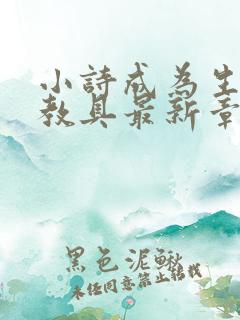 小詩成為生
教具最新章
黑色泥鰍
未经同意禁止转载